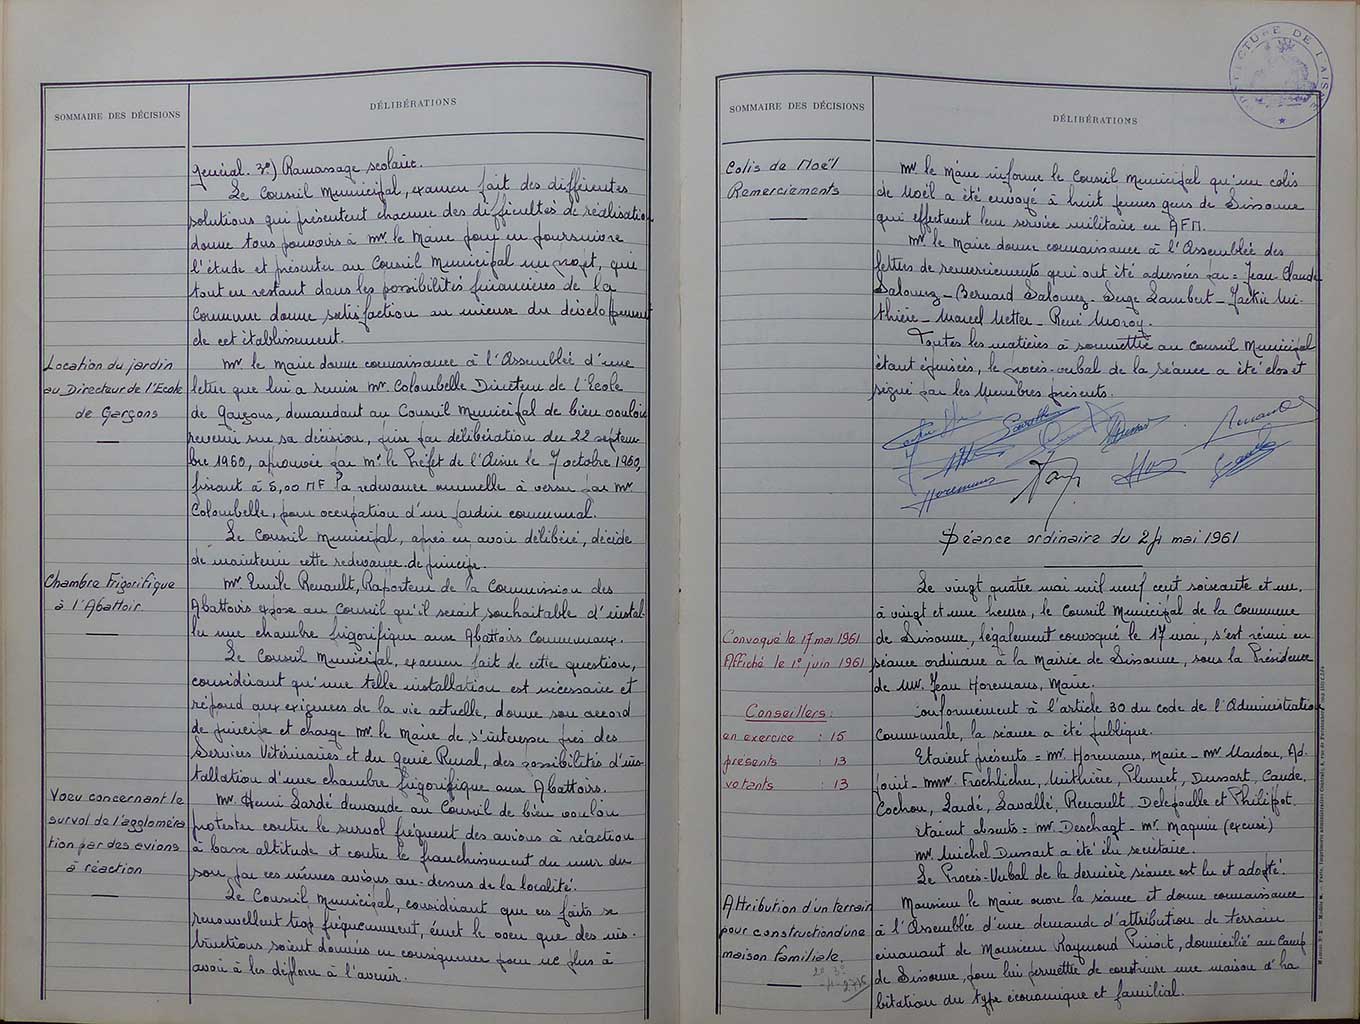 SOMMAIRE DES DÉCISIONS
DÉLIBÉRATIONS
général. 3º) Ramassage scolaire.
Le Conseil Municipal, examen fait des différentes
solutions qui présentent chacune des difficultés de réalisation
donne tous pouvoirs à Mr. le Maire pour en poursuivre
l'étude et présenter au Conseil Municipal un projet, qui
tout en restant dans les possibilités financières de la
Commune donne satisfaction au mieux du développement
de cet établissement.
Location du jardin
au Directeur de l'Ecole
de Garçons
Mr. le Maire donne connaissance à l'Assemblée d'une
lettre que lui a remise Mr. Colombelle Directeur de l'Ecole
de Garçons, demandant au Conseil Municipal de bien vouloir
revenir sur sa décision, prise par délibération du 22 septem-
bre 1960, approuvée par Mr. le Préfet de l'Aisne le 7 octobre 1960,
fixant à 5,00 NF la redevance annuelle à verser par Mr.
Colombelle, pour occupation d'un jardin communal.
Le Conseil Municipal, après en avoir délibéré, décide
de maintenir cette redevance de principe.
Chambre Frigorifique
à l'Abattoir
Mr. Emile Renault, Rapporteur de la Commission des
Abattoirs expose au Conseil qu'il serait souhaitable d'instal-
ler une chambre frigorifique aux Abattoirs Communaux.
Le Conseil Municipal, examen fait de cette question,
considérant qu'une telle installation est nécessaire et
répond aux exigences de la vie actuelle, donne son accord
de principe et charge Mr. le Maire de s'informer près des
Services Vétérinaires et du Génie Rural, des possibilités d'ins-
tallation d'une chambre frigorifique aux Abattoirs.
Voeu concernant le
survol de l'aggloméra
tion par des avions
à réaction
Mr. Henri Lardé demande au Conseil de bien vouloir
protester contre le survol fréquent des avions à réaction
à basse altitude et contre le franchissement du mur du
son par ces mêmes avions au-dessus de la localité.
Le Conseil Municipal, considérant que ces faits se
renouvellent trop fréquemment, émet le voeu que des ins-
tructions soient données en conséquence pour ne plus à
avoir à les déplorer à l'avenir.
SOMMAIRE DES DÉCISIONS
DÉLIBÉRATIONS
PRÉFECTURE DE L'AISNE
Colis de Noël
Remerciements
Mr. le Maire informe le Conseil Municipal qu'un colis
de Noël a été envoyé à huit jeunes gens de Sissonne
qui effectuent leur service militaire en AFN.
Mr. le Maire donne connaissance à l'Assemblée des
lettres de remerciements qui ont été adressées par = Jean Claude
Salomez - Bernard Salomez - Serge Lambert - Jackie Mi-
thière - Marcel Netter - René Moroy.
Toutes les matières à soumettre au Conseil Municipal
étant épuisées, le procès-verbal de la séance a été clos et
signé par les Membres présents.
Horemans
Séance ordinaire du 24 mai 1961
Convoqué le 17 mai 1961
Affiché le 1º juin 1961
Conseillers:
en exercice : 15
présents : 13
votants : 13
Le vingt quatre mai mil neuf cent soixante et un.
à vingt et une heures, le Conseil Municipal de la Commune
de Sissonne, légalement convoqué le 17 mai, s'est réuni en
séance ordinaire à la Mairie de Sissonne, sous la Présidence
de Mr. Jean Horemans, Maire.
Conformément à l'article 30 du code de l'Administration
Communale, la séance a été publique.
Etaient présents = Mr. Horemans, Maire - Mr Nardou, Ad-
joint - MMrs. Frochlicher, Mithière, Plumet, Dussart, Caude,
Cochou, Lardé, Lavallé, Renault, Delepoulle et Philippot.
Etaient absents = Mr. Deschagt - Mr. Maguin (excusé)
Mr. Michel Dussart a été élu secrétaire.
Le Procès-Verbal de la dernière séance est lu et adopté.
Attribution d'un terrain
pour construction d'une
maison familiale.
Monsieur le Maire ouvre la séance et donne connaissance
à l'Assemblée d'une demande d'attribution de terrain
émanant de Monsieur Raymond Pinoit, domicilié au Camp
de Sissonne, pour lui permettre de construire une maison d'ha
bitation du type économique et familial.